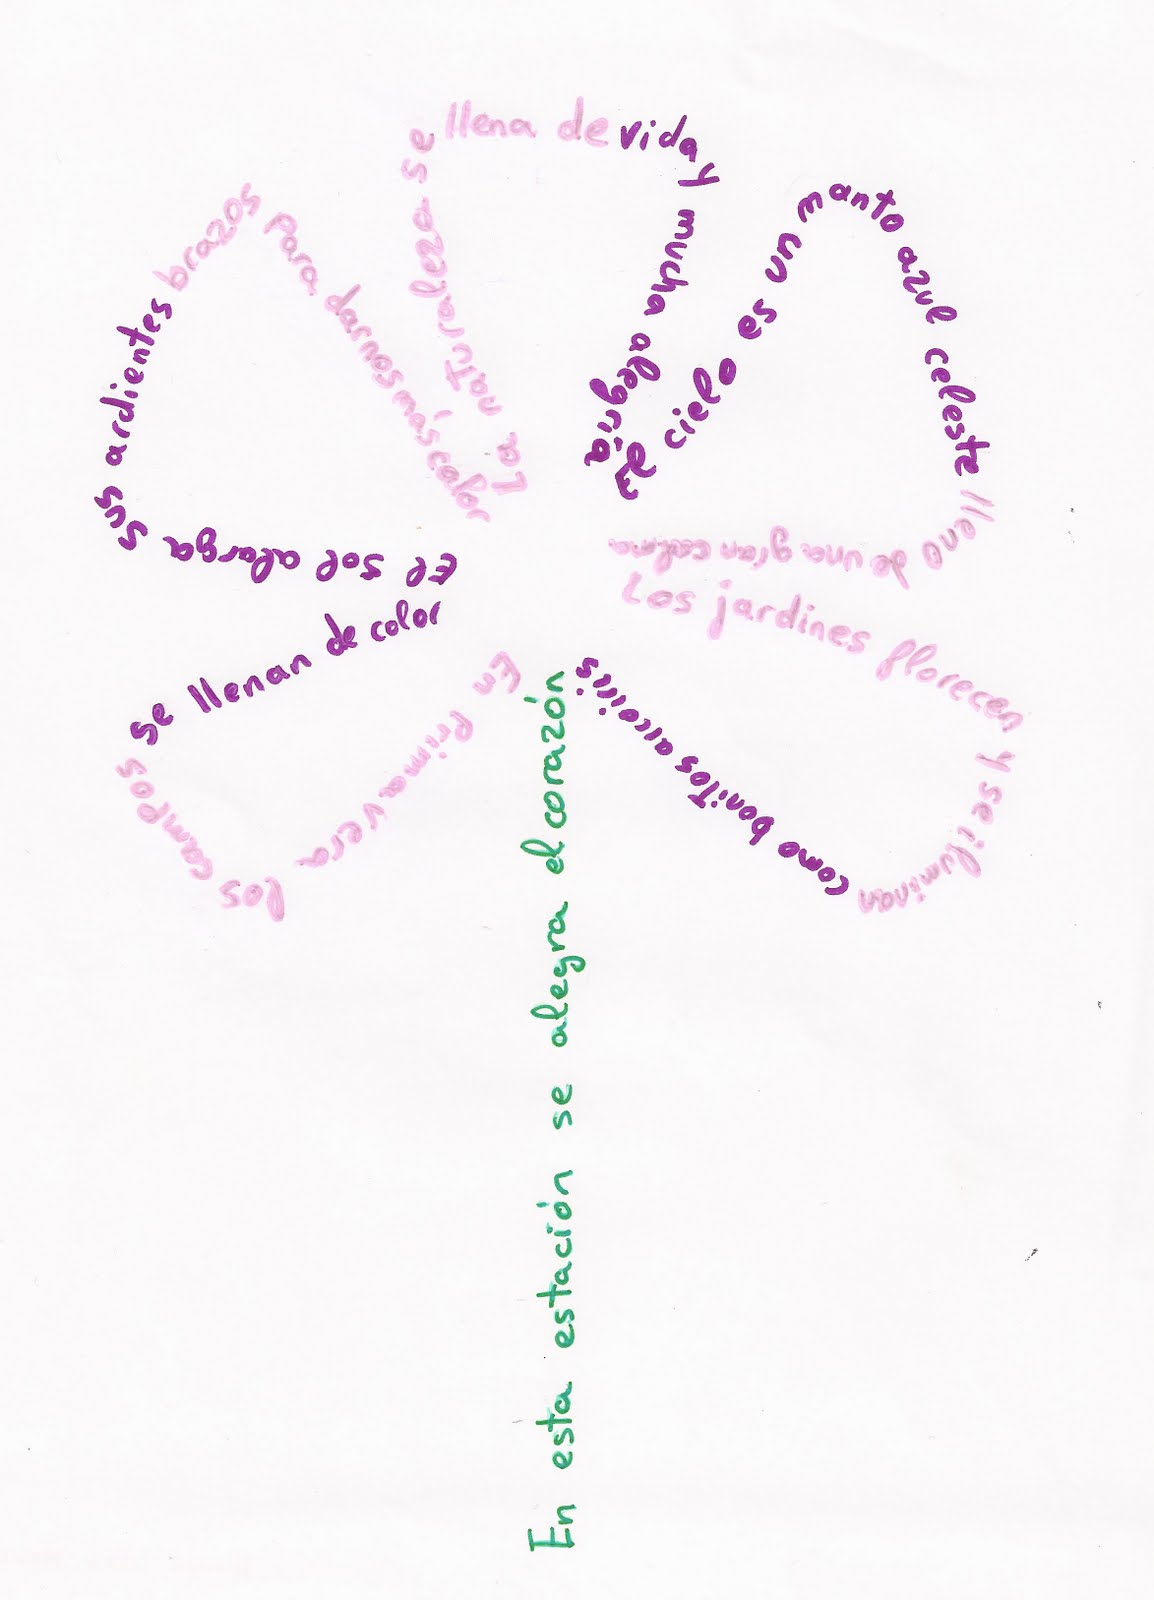 En Primavera los campos se llenan de color
El sol alarga sus ardientes brazos para darnos más calor
La naturaleza se llena de vida y mucha alegría
El cielo es un manto azul celeste lleno de una gran calma
Los jardines florecen y se iluminan como bonitos arcoiris
En esta estación se alegra el corazón